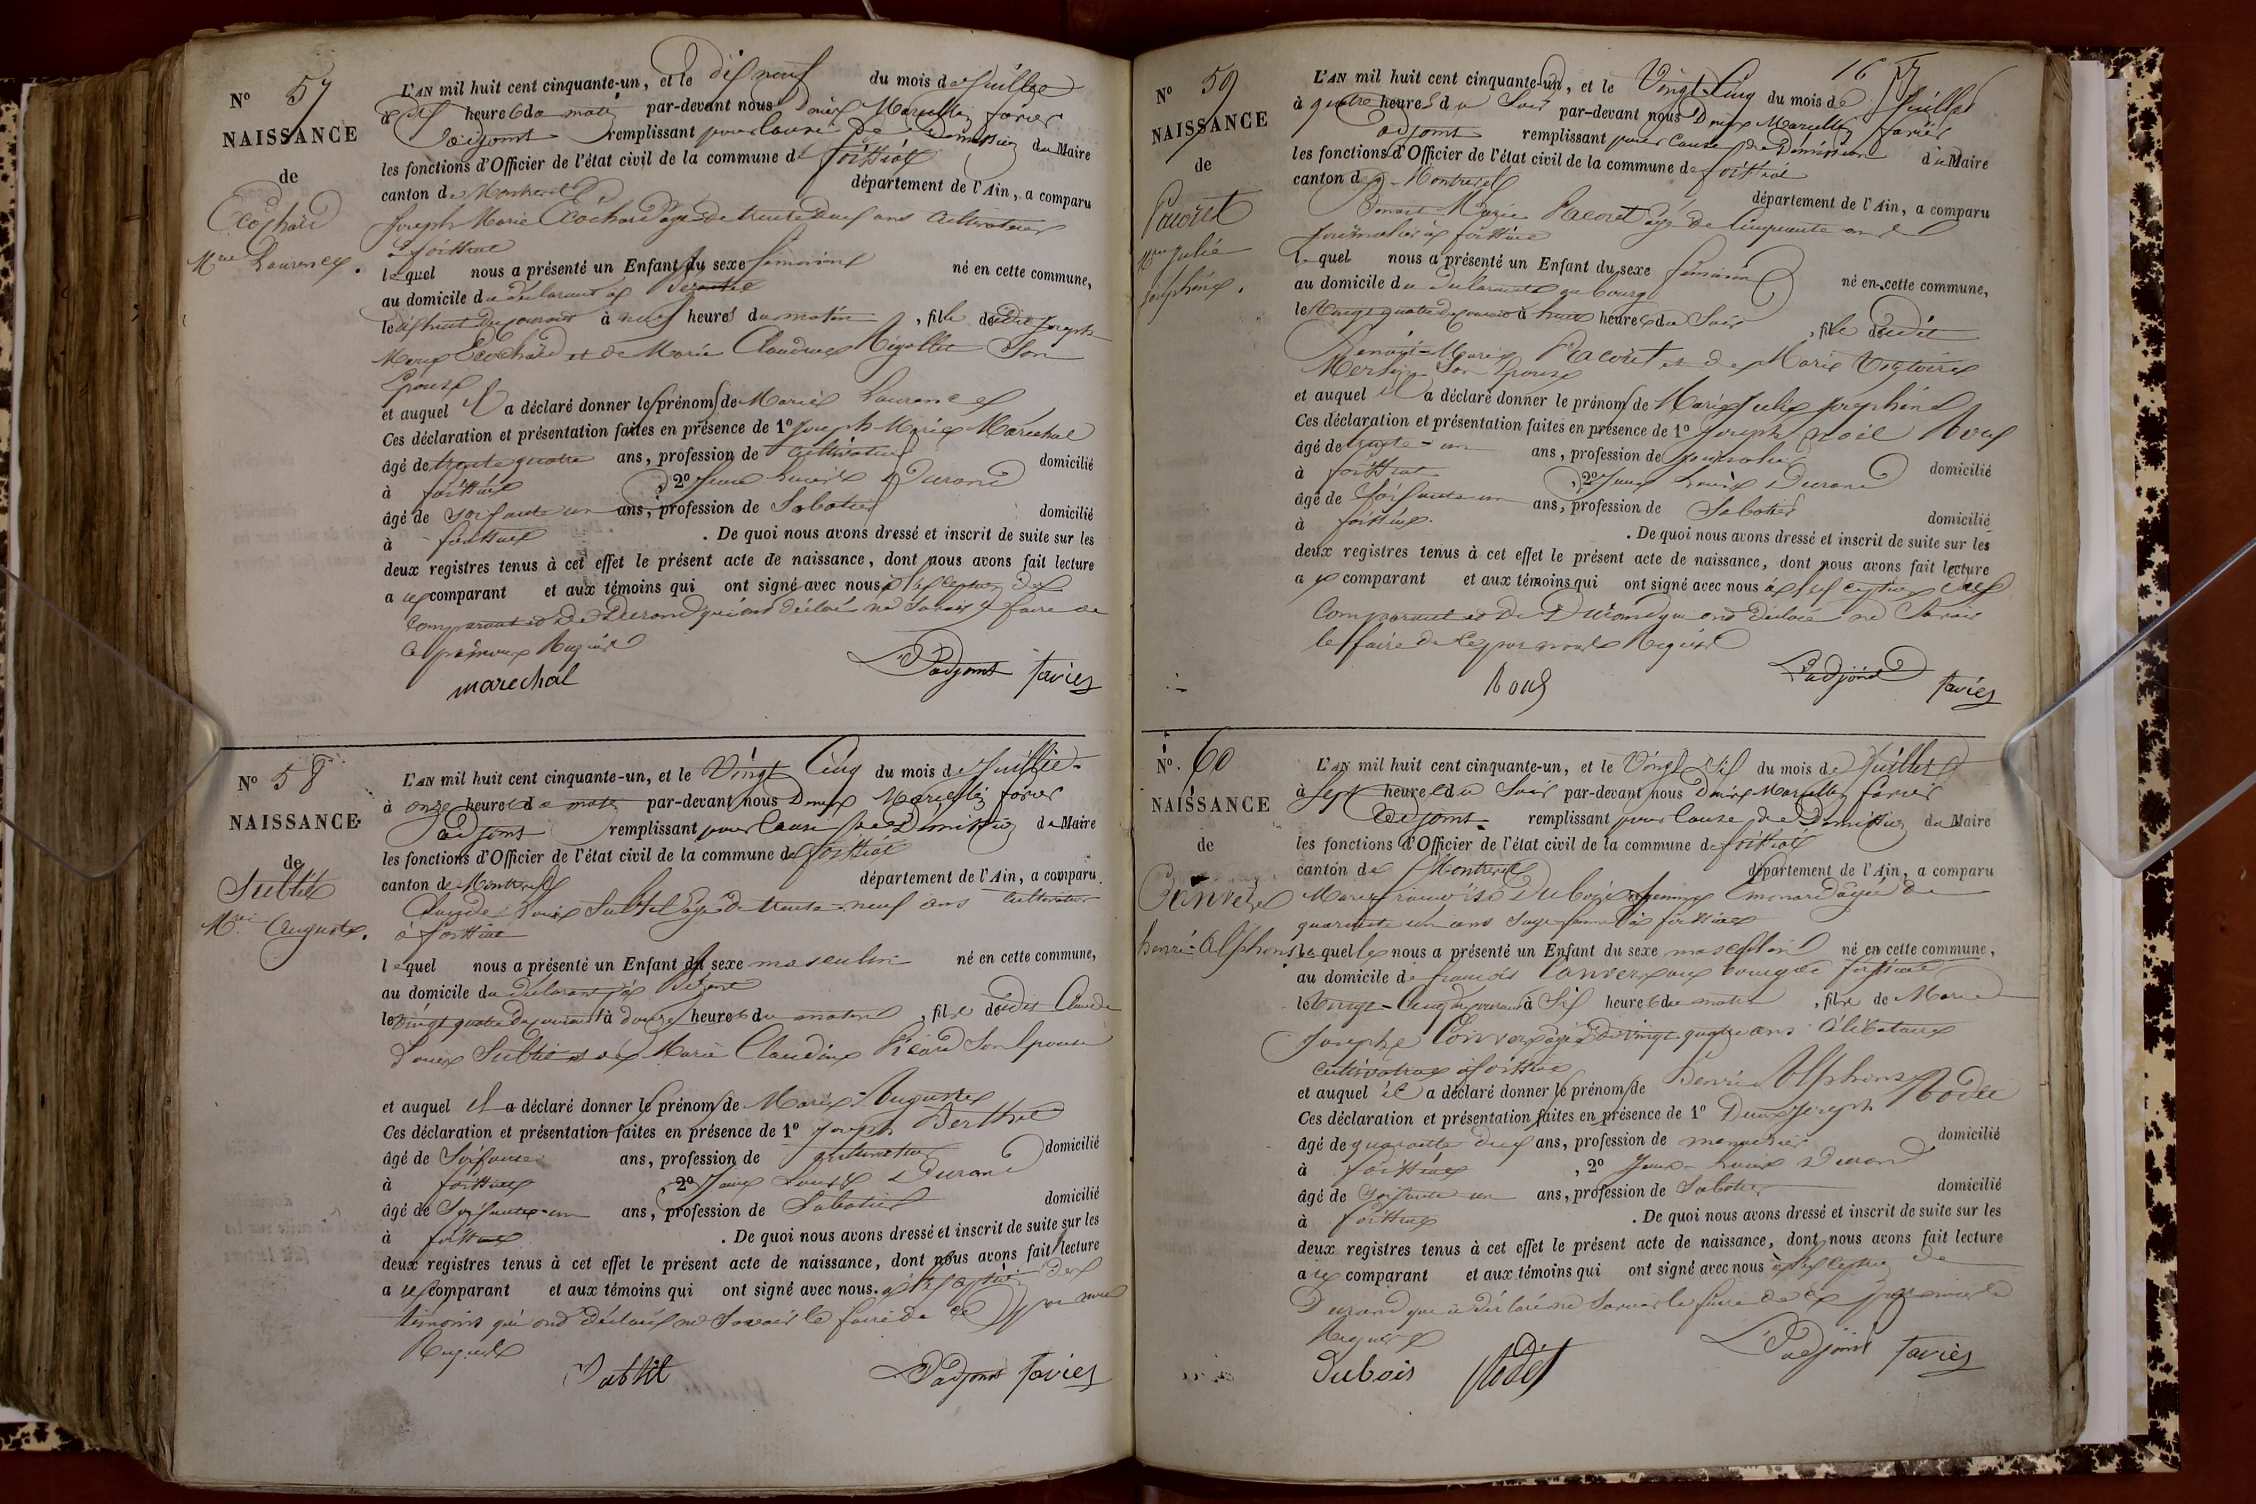 N° 57
NAISSANCE
de
Ecochard
Mie Laurence.
L'AN mil huit cent cinquante-un, et le dix neuf du mois de Juillet
à dix heures du matin par-devant nous Denis Marcellin favier
adjoint remplissant pour cause de Démission du Maire
les fonctions d'Officier de l'état civil de la commune de foissiat
canton de Montrevel département de l'Ain, a comparu
Joseph Marie Ecochard âgé de trente neuf ans cultivateur
à foissiat
lequel nous a présenté un Enfant du sexe féminin né en cette commune,
au domicile du déclarant à
le dix huit du courant à neuf heures du matin, fille dudit Joseph
Marie Ecochard et de Marie Claudine Son
Epouse
et auquel il a déclaré donner les prénoms de Marie Laurence
Ces déclaration et présentation faites en présence de 1° Joseph Marie Maréchal
âgé de trente quatre ans, profession de cultivateur domicilié
à foissiat, 2° Jean Louis Durand
âgé de soixante un ans, profession de Sabotier domicilié
à foissiat. De quoi nous avons dressé et inscrit de suite sur les
deux registres tenus à cet effet le présent acte de naissance, dont nous avons fait lecture
a ce comparant et aux témoins qui ont signé avec nous à l'exception du
comparant et de Durand qui ont déclaré ne Savoir le faire de
ce par nous Requis
marechal L'adjoint favier
N° 58
NAISSANCE
de
Subtil
Mie Auguste.
L'AN mil huit cent cinquante-un, et le Vingt Cinq du mois de Juillet
à onze heures du matin par-devant nous Denis Marcellin favier
adjoint remplissant pour cause de Démission du Maire
les fonctions d'Officier de l'état civil de la commune de foissiat
canton de Montrevel département de l'Ain, a comparu
Claude Louis Subtil âgé de trente-neuf ans cultivateur
à foissiat
lequel nous a présenté un Enfant du sexe masculin né en cette commune,
au domicile du déclarant à
le vingt quatre du courant à douze heures du matin, fils dudit Claude
Louis Subtil et de Marie Claudine Picard Son Epouse
et auquel il a déclaré donner les prénoms de Marie Auguste
Ces déclaration et présentation faites en présence de 1° Joseph Berthet
âgé de Soixante ans, profession de cultivateur domicilié
à foissiat, 2° Jean Louis Durand
âgé de Soixante-un ans, profession de Sabotier domicilié
à foissiat. De quoi nous avons dressé et inscrit de suite sur les
deux registres tenus à cet effet le présent acte de naissance, dont nous avons fait lecture
a ce comparant et aux témoins qui ont signé avec nous. à l'exception des
témoins qui ont déclaré ne Savoir le faire de ce par nous
Requis
Subtil L'adjoint favier
16
N° 59
NAISSANCE
de
Pacoret
Mie Julie
Josephine.
L'AN mil huit cent cinquante-un, et le Vingt-Cinq du mois de Juillet
à quatre heures du Soir par-devant nous Denis Marcellin favier
adjoint remplissant pour cause de Démission du Maire
les fonctions d'Officier de l'état civil de la commune de foissiat
canton de Montrevel département de l'Ain, a comparu
Benoit Marie Pacoret âgé de Cinquante ans
Journalier à foissiat
lequel nous a présenté un Enfant du sexe féminin né en cette commune,
au domicile du déclarant au bourg
le Vingt quatre du courant à huit heures du Soir, fille dudit
Benoit-Marie Pacoret et de Marie Victoire
Son Epouse
et auquel il a déclaré donner le prénom de Marie Julie Josephine
Ces déclaration et présentation faites en présence de 1° Joseph Noël Roux
âgé de trente-un ans, profession de Journalier domicilié
à foissiat, 2° Jean Louis Durand
âgé de Soixante un ans, profession de Sabotier domicilié
à foissiat. De quoi nous avons dressé et inscrit de suite sur les
deux registres tenus à cet effet le présent acte de naissance, dont nous avons fait lecture
a ce comparant et aux témoins qui ont signé avec nous à l'exception du
Comparant et de Durand qui ont déclaré ne Savoir
le faire de ce par nous Requis
Roux L'adjoint favier
N° 60
NAISSANCE
de
Convert
henri-Alphonse
L'AN mil huit cent cinquante-un, et le Vingt Six du mois de Juillet
à Sept heures du Soir par-devant nous Denis Marcellin favier
adjoint remplissant pour cause de Démission du Maire
les fonctions d'Officier de l'état civil de la commune de foissiat
canton de Montrevel département de l'Ain, a comparu
Marie françoise Dubois femme âgée de
quarante un ans Sage femme à foissiat
laquelle nous a présenté un Enfant du sexe masculin né en cette commune,
au domicile de françois Convert au bourg de foissiat
le Vingt-Cinq du courant à Six heures du matin, fils de Marie
Josephe Convert âgée de vingt quatre ans célibataire
cultivatrice à foissiat
et auquel il a déclaré donner le prénom de henri Alphonse
Ces déclaration et présentation faites en présence de 1° Denis Joseph Rodet
âgé de quarante deux ans, profession de menuisier domicilié
à foissiat, 2° Jean-Louis Durand
âgé de Soixante un ans, profession de Sabotier domicilié
à foissiat. De quoi nous avons dressé et inscrit de suite sur les
deux registres tenus à cet effet le présent acte de naissance, dont nous avons fait lecture
a ce comparant et aux témoins qui ont signé avec nous à l'exception de
Durand qui a déclaré ne Savoir le faire de ce par nous
Requis
Dubois Rodet L'adjoint favier